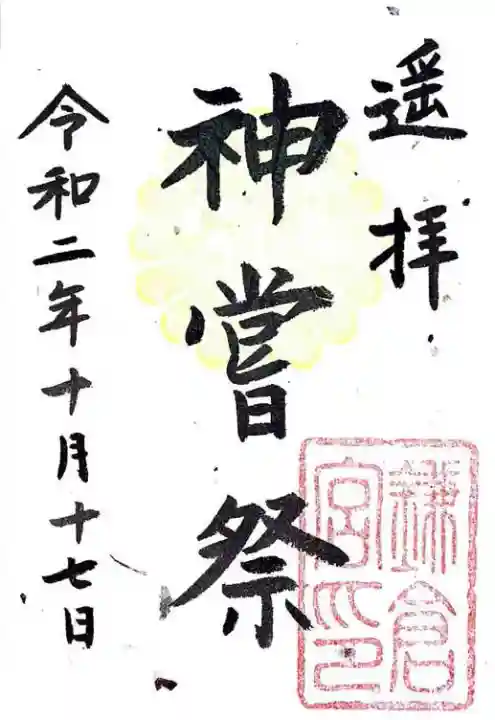 遥拝
神嘗祭
鎌倉
宮印
令和二年十月十七日